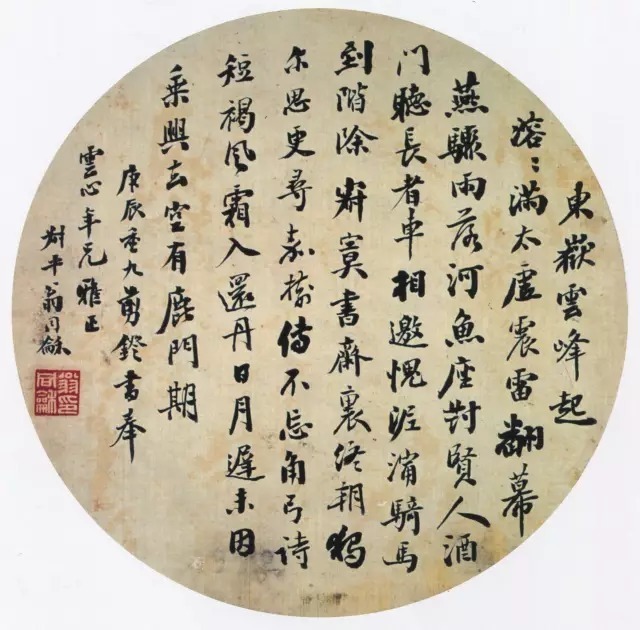 東嶽雲峰起
溶〻滿太虛震雷翻幕
燕驟雨落河魚座對賢人酒
門聽長者車相邀愧泥濘騎馬
到階除寂寞書齋裏終朝獨
尔思更尋嘉樹傳不忘角弓詩
短褐風霜入還丹日月遲未因
乘興去空有鹿門期
庚辰重九翦鐙書奉
雲心年兄雅正
叔平翁同龢
翁同龢印